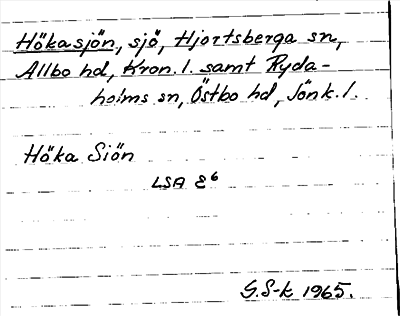 Hökasjön, sjö, Hjortsberga sn,
Allbo hd, Kron. l. samt Ryda-
holms sn, Östbo hd, Jönk. l.
Höka Siön
LSA E6
G.S-k 1965.